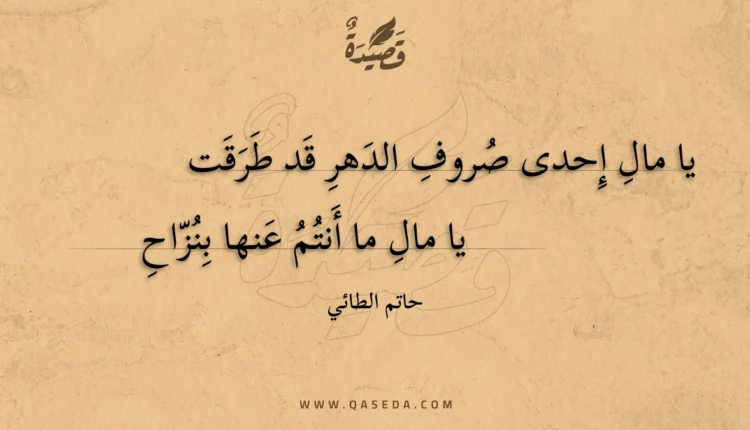 قَصِيْدَةٌ
يا مالِ إِحدى صُروفِ الدَهرِ قَد طَرَقَت
يا مالِ ما أَنتُمُ عَنها بِنُزّاحِ
حاتم الطائي
WWW.QASEDA.COM